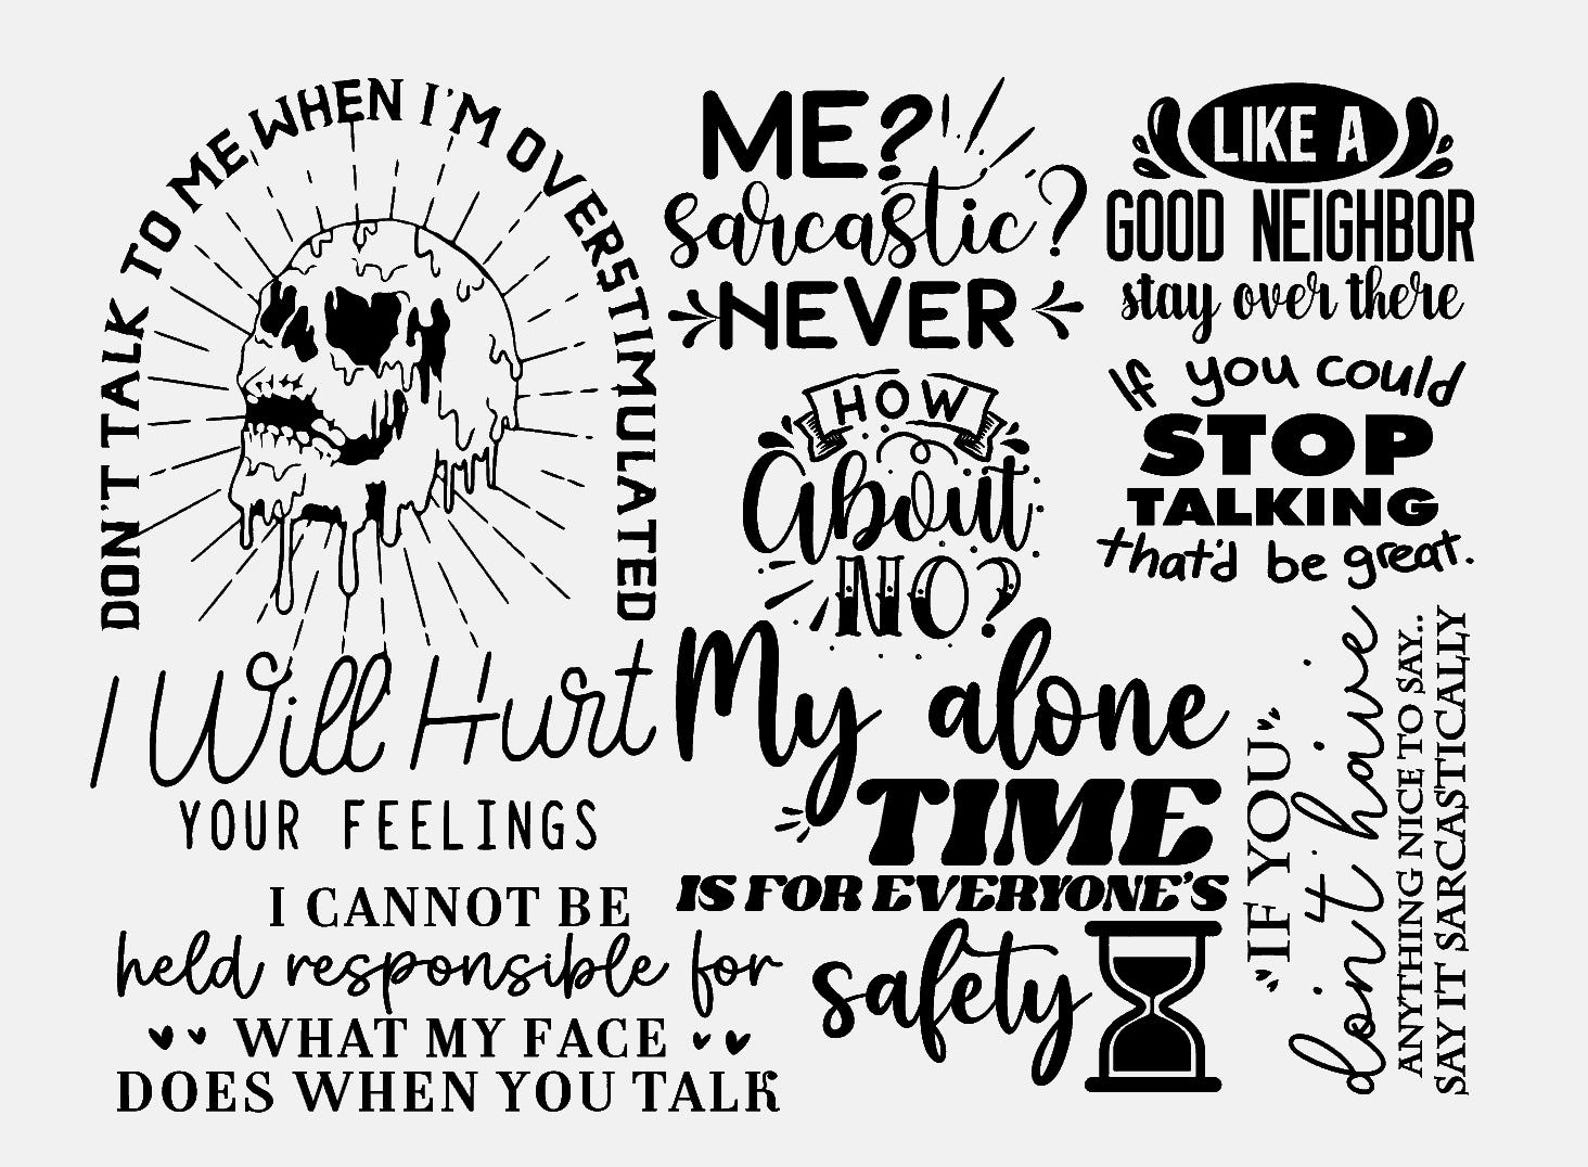 DON'T TALK TO ME WHEN I'M OVERSTIMULATED
I Will Hurt
YOUR FEELINGS
I CANNOT BE
held responsible for
WHAT MY FACE
DOES WHEN YOU TALK
ME?
sarcastic?
NEVER
HOW
About
NO?
My alone
TIME
IS FOR EVERYONE'S
safety
LIKE A
GOOD NEIGHBOR
stay over there
If you could
STOP
TALKING
that'd be great.
"IF YOU"
don't have
ANYTHING NICE TO SAY...
SAY IT SARCASTICALLY